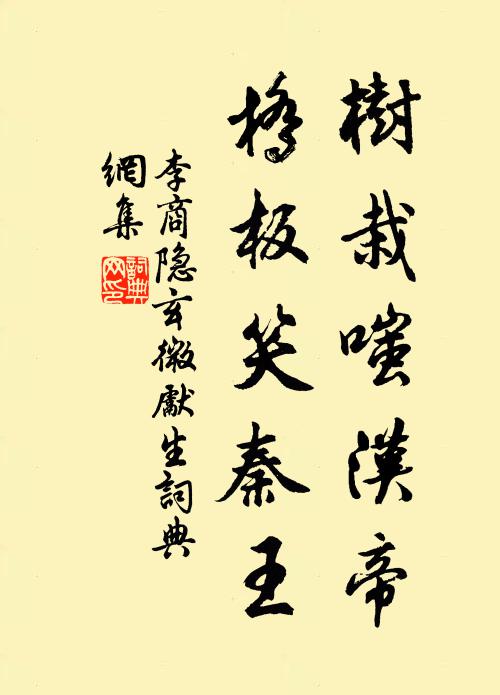 樹栽嗤漢帝
橋板笑秦王
李商隐玄微獻生詞典
網集
詞典
网印